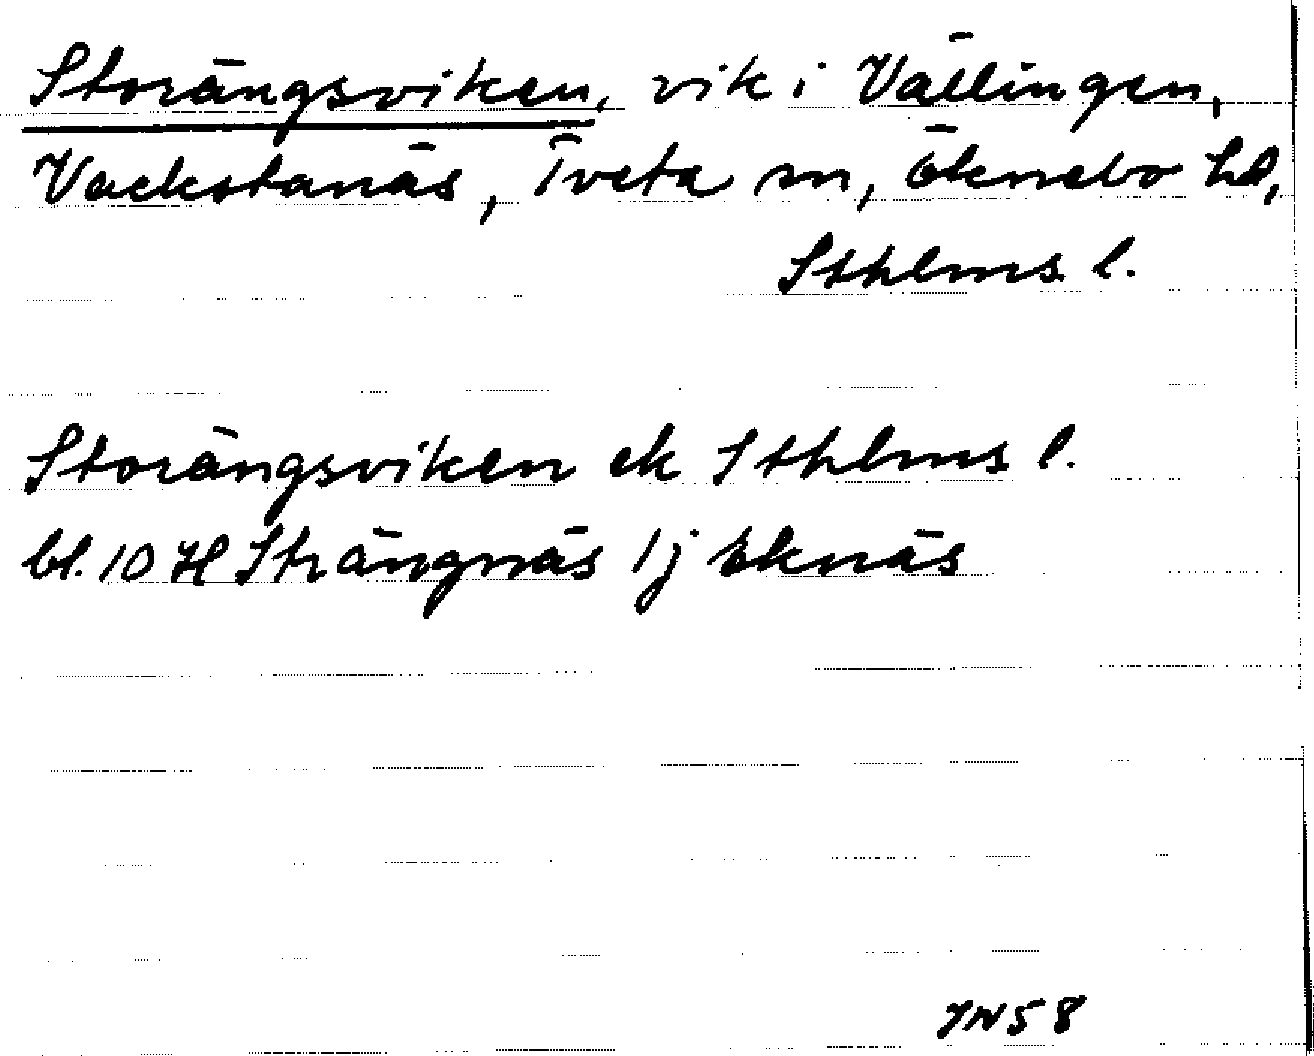 Storängsviken, vik i Vällingen,
Vackstanäs, Tveta sn, Öknebo hd,
Sthlms l.
Storängsviken ek Sthlms l.
bl. 10 H Strängnäs 1j Eknäs
YN58